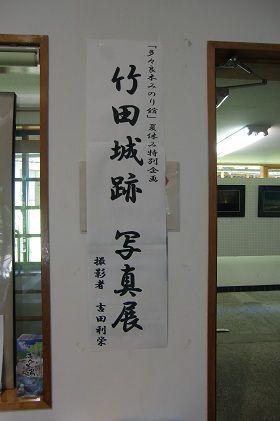 「多々良木みのり館」夏休み特別企画
竹田城跡 写真展
撮影者 吉田利栄